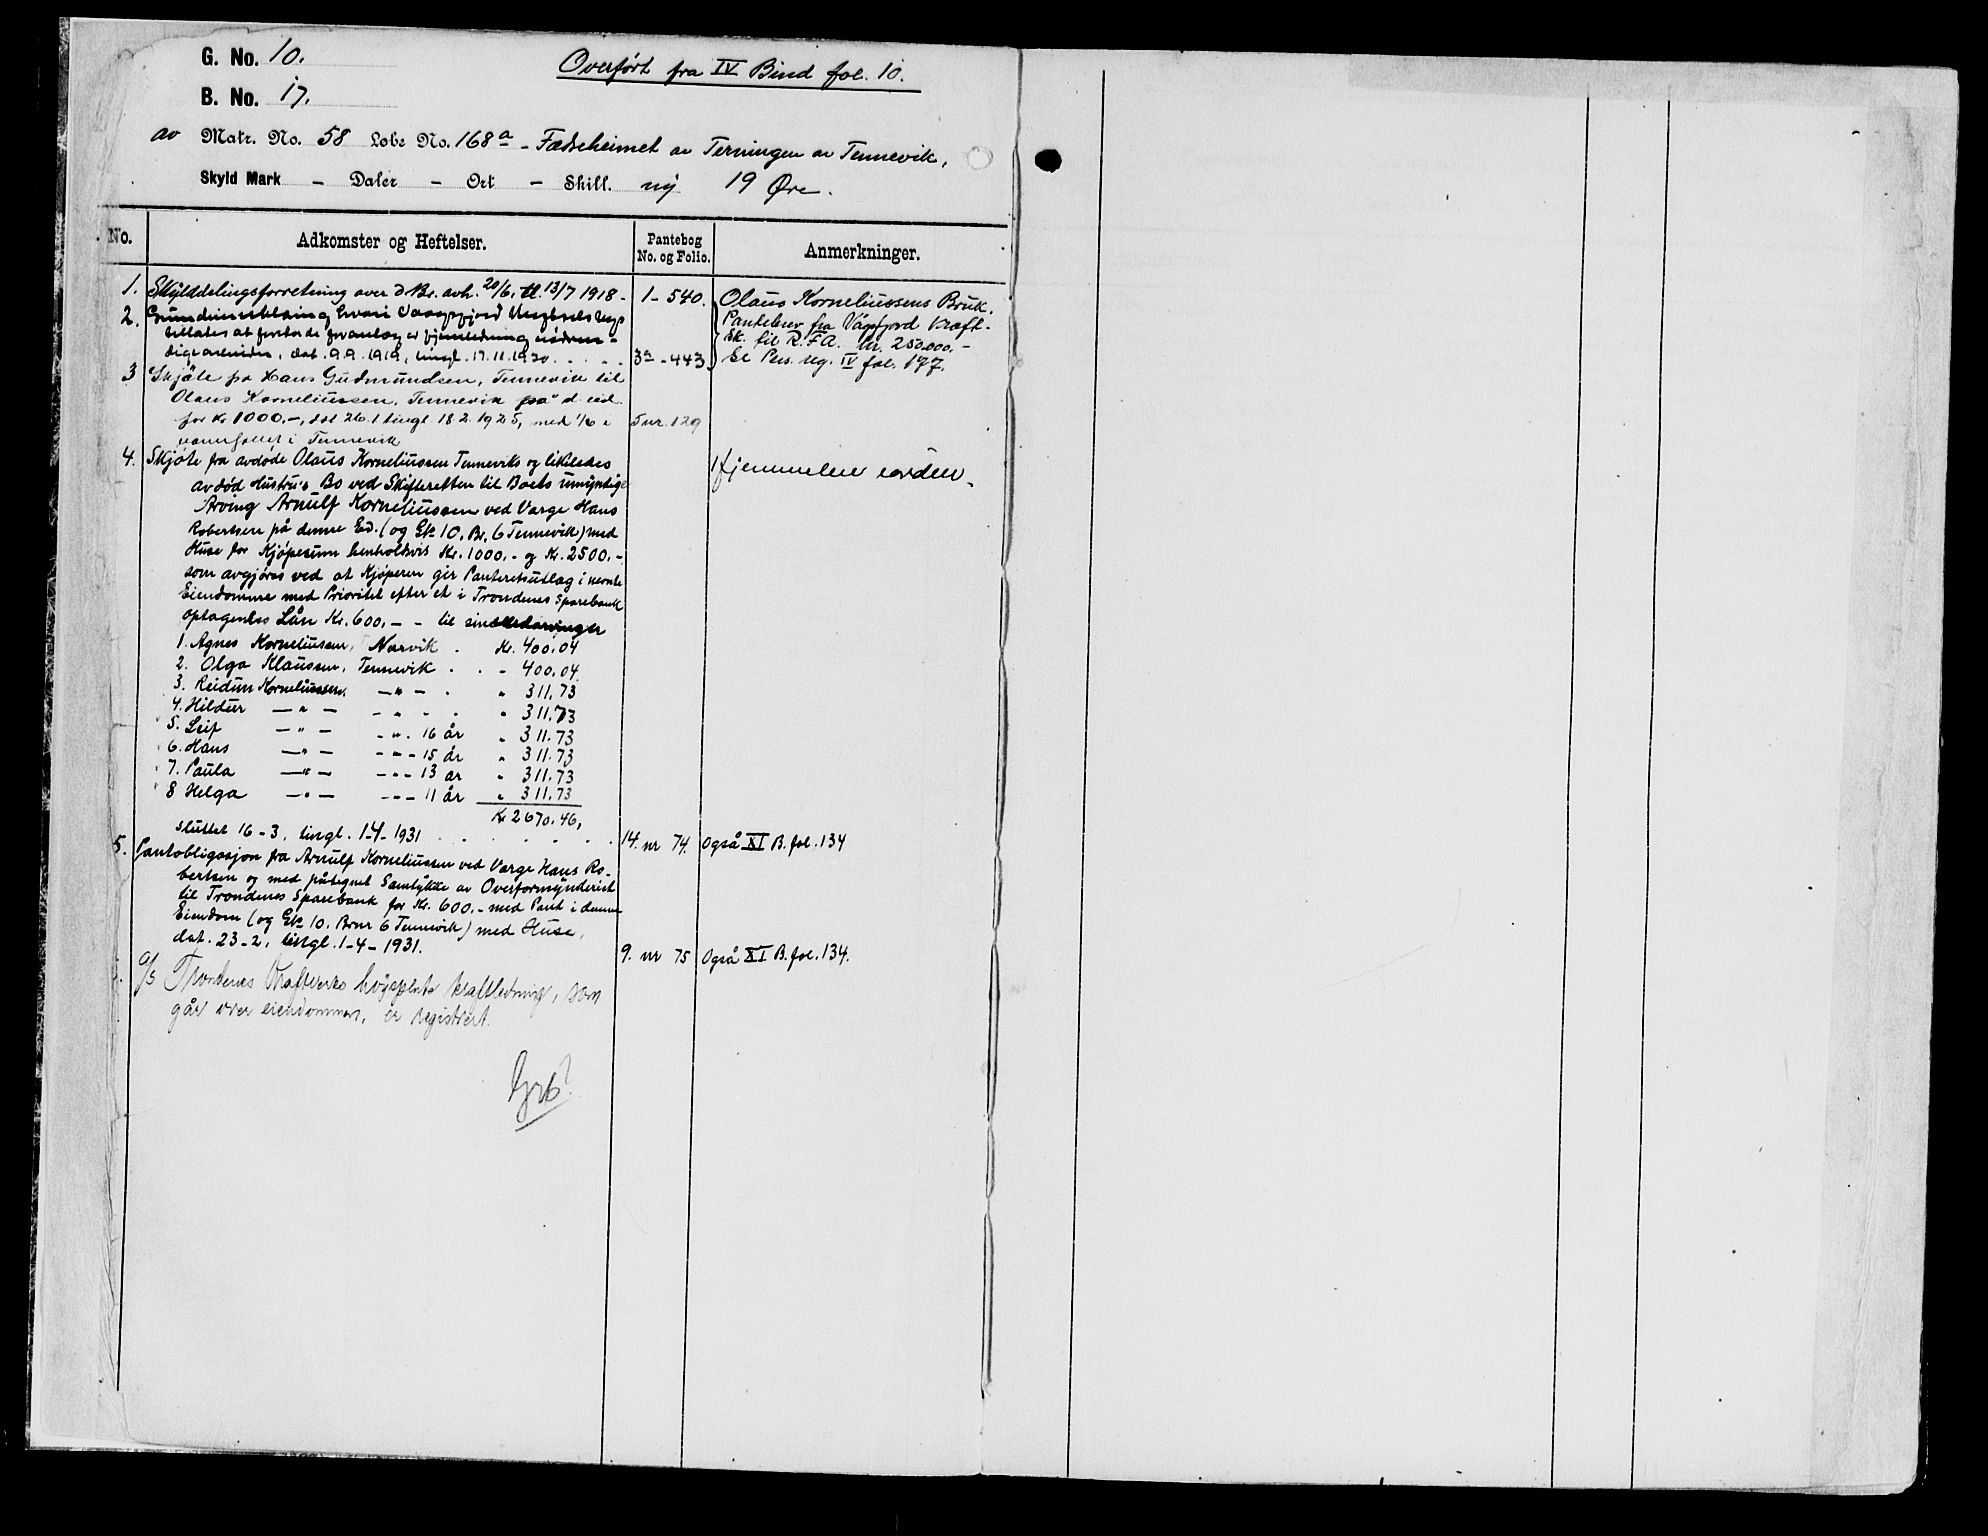 G. No. 10.
Overført fra IV Bind fol. 10.
B. No. 17.
av Matr. No. 58 Lobe No. 168a - Fædreheimet av Terningen av Tennevik,
Skyld Mark - Daler - Ort - Skill. ny 19 Øre.
No. Adkomster og Heftelser. Pantebog No. og Folio. Anmerkninger.
1. Skylddelingsforretning over d. Br. avh. 20/6, tl. 13/7 1918 - 1 - 540. Olaus Korneliussens Bruk.
2. Grunderklæring hvori Vaagsfjord
tillates at foreta de for anlæg av fjernledning nødven-
dige arbeider, dat. 9.9.1919, tingl. 17.11.1920 3a - 443
Pantebrev fra Vågsfjord Kraft-
sk. til R.F.A. kr. 250.000.-
Se Pers. reg. IV fol. 177.
3 Skjøte fra Hans Gudmundsen, Tennevik til
Olaus Korneliussen, Tennevik på d. eid.
for kr 1000.-, dat 26.1 tingl 18.2.1925, med 1/6 i 5 nr. 129
vannfallet i Tennevik
4. Skjøte fra avdøde Olaus Korneliussen Tenneviks og likeledes
avdød Hustru's Bo ved Skifteretten til Boets umyndige
Arving Arnulf Korneliussen ved Verge Hans
Robertsen på denne Ed. (og Gk 10. Br. 6 Tennevik) med
Huse for Kjøpesum henholdsvis Kr. 1000.- og Kr. 2500.-
som avgjøres ved at Kjøperen gir Panteretsutlæg i nevnte
Eiendomme med Prioritet efter et i Trondenes Sparebank
optagendes Lån Kr. 600.- - til sine Medarvinger
Hjemmelen i orden.
1. Agnes Korneliussen, Narvik . Kr. 400.04
2. Olga Klaussen, Tennevik . . - 400.04.
3. Reidun Korneliussen, -"- . " 311.73
4. Hildur -"- -"- . " 311.73
5. Leif -"- -"- 16 år " 311.73
6. Hans -"- -"- 15 år " 311.73
7. Paula -"- -"- 13 år " 311.73
8 Helga -"- -"- 11 år " 311.73
Kr 2670.46,
sluttet 16-3, tingl. 1-4-1931 . . . 14. nr 74. Også XI B. fol. 134
5. Pantobligasjon fra Arnulf Korneliussen ved Verge Hans Ro-
bertsen og med påtegnet Samtykke av Overformynderiet
til Trondenes Sparebank for Kr. 600.- med Pant i denne
Eiendom (og Gk 10. Brnr 6 Tennevik) med Huse,
dat. 23-2, tingl. 1-4-1931. 9. nr 75 Også XI B. fol. 134.
A/S Trondenes Kraftverks høyspente kraftledning, som
går over eiendommen, er registrert.